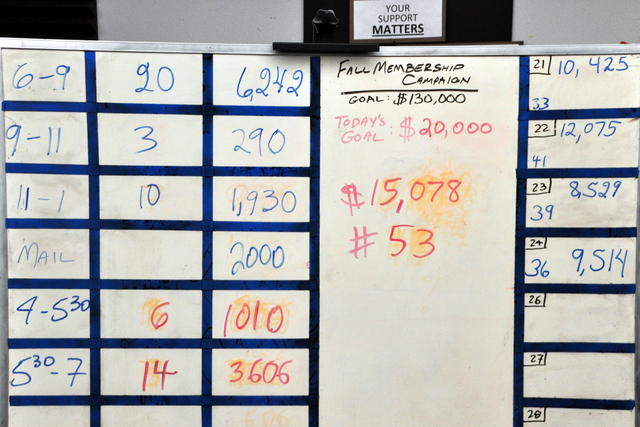 YOUR
SUPPORT
MATTERS
6-9 20 6,242
9-11 3 290
11-1 10 1,930
MAIL 2000
4-5³⁰ 6 1010
5³⁰-7 14 3606
606
FALL MEMBERSHIP
CAMPAIGN
GOAL: $130,000
TODAY'S
GOAL: $20,000
$15,078
# 53
21 10,425
33
22 12,075
41
23 8,529
39
24 9,514
36
26
27
28